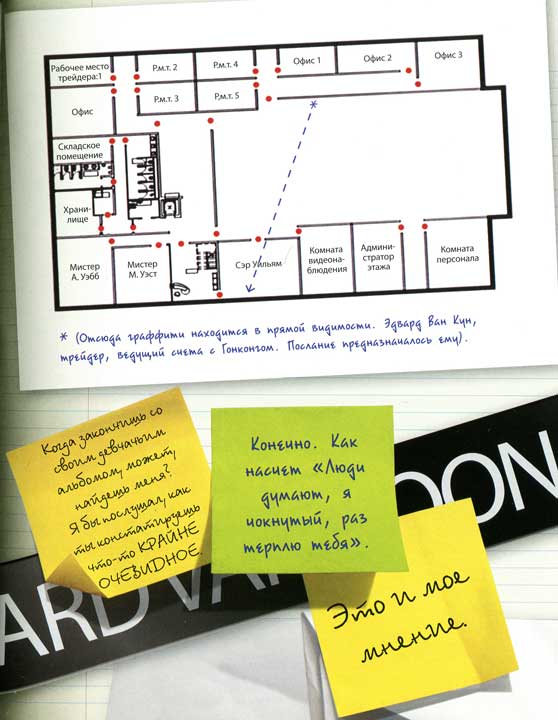 Рабочее место
трейдера:1
Р.м.т. 2
Р.м.т. 4
Офис 1
Офис 2
Офис 3
Р.м.т. 3
Р.м.т. 5
Офис
Складское
помещение
Храни-
лище
Мистер
А. Уэбб
Мистер
М. Уэст
Сэр Уильям
Комната
видеона-
блюдения
Админи-
стратор
этажа
Комната
персонала
* (Отсюда граффити находится в прямой видимости. Эдвард Ван Кун,
трейдер, ведущий счета с Гонконгом. Послание предназначалось ему).
Когда закончишь со
своим девчачьим
альбомом, может,
найдешь меня?
Я бы послушал, как
ты констатируешь
что-то КРАЙНЕ
ОЧЕВИДНОЕ.
Конечно. Как
насчет «Люди
думают, я
чокнутый, раз
терплю тебя».
Это и мое
мнение.
ARD VA
OON